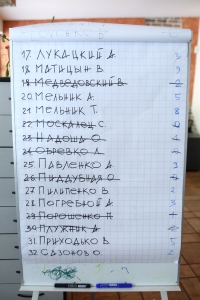 17. ЛУКАЦКИЙ А. 3
18. МАТИЦЫН В. 9
19. МЕДВЕДОВСКИЙ В.
20. МЕЛЬНИК А. 5
21. МЕЛЬНИК Т. 8
22. МОСКАЛЕЦ С.
23. НАДОША О.
24. ОБРЕВКО Л.
25. ПАВЛЕНКО А. 9
26. ПИДДУБНАЯ О.
27. ПИЛИПЕНКО В. 2
28. ПОГРЕБНОЙ А. 3
29. ПОРОШЕНКО П.
30. ПЛУЖНИК А.
31. ПРИХОДЬКО В. 5
32. САЗОНОВ О. 2